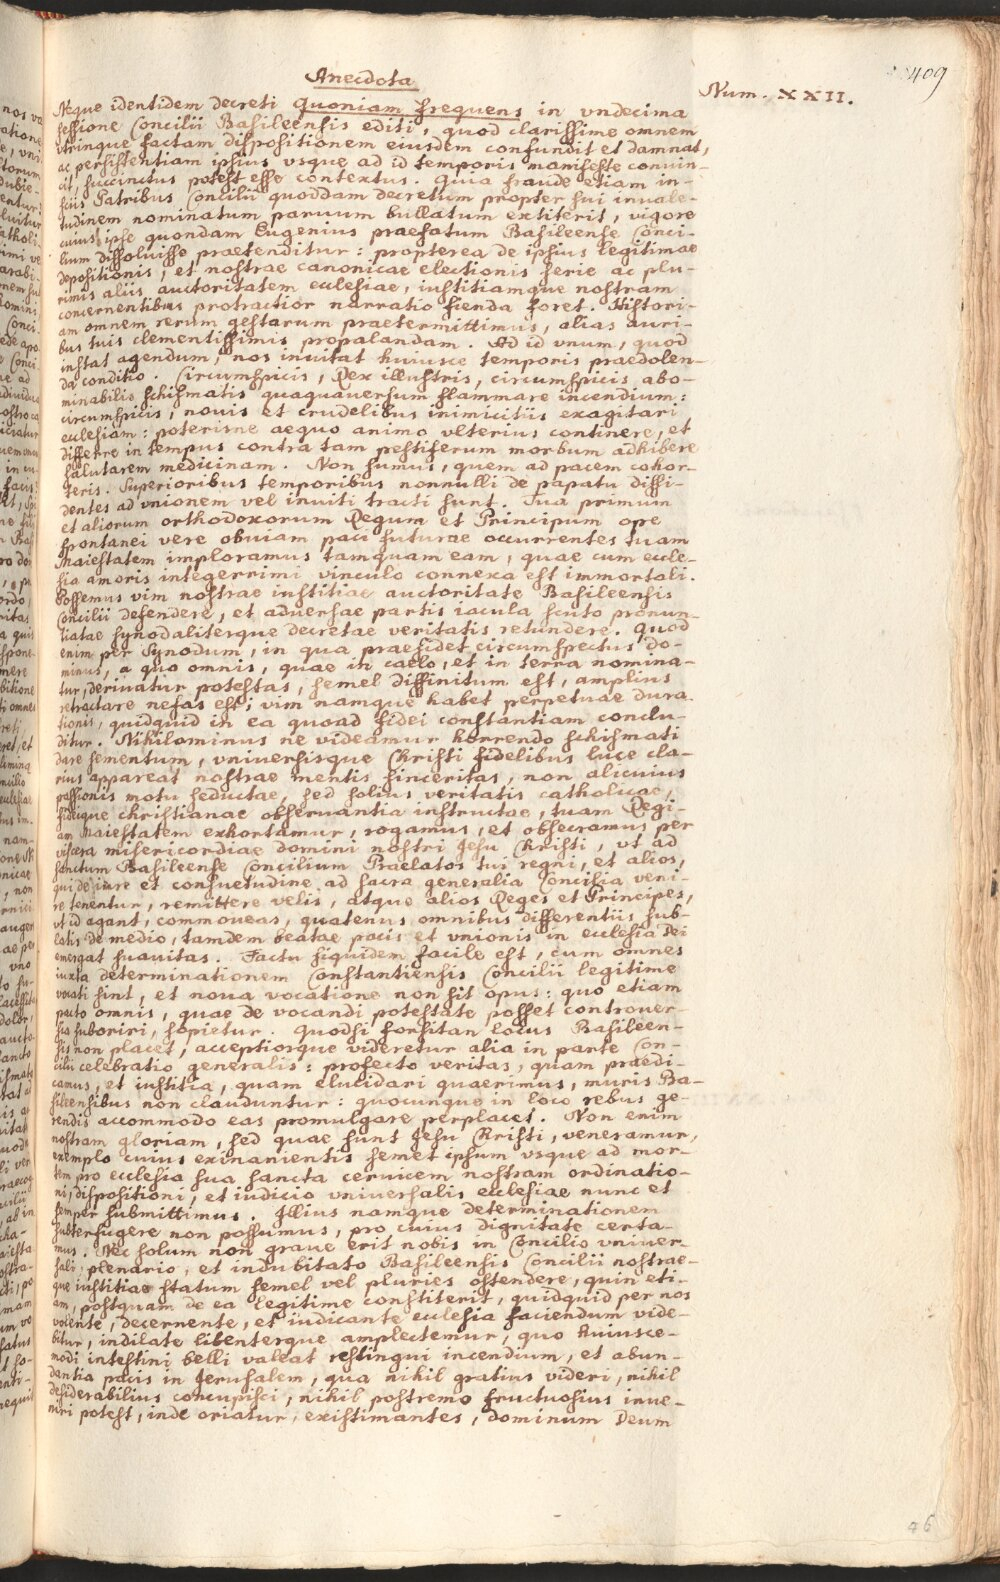 Anecdota
409
Num. XXII.
Neque identidem decreti Quoniam frequens in vndecima
sessione Concilii Basileensis editi, quod clarissime omnem
vtrinque factam dispositionem eiusdem confundit et damnat,
ac persistentiam ipsius vsque ad id temporis manifeste conuin-
cit, succinctus potest esse contextus. Quia fraude etiam in-
sciis Patribus Concilii quoddam decretum propter sui inuale-
tudinem nominatum paruum bullatum extiterit, vigore
cuius ipse quondam Eugenius praefatum Basileense Conci-
lium dissoluisse praetenditur: propterea de ipsius legitimae
depositionis, et nostrae canonicae electionis serie ac plu-
rimis aliis auctoritatem ecclesiae, iustitiamque nostram
concernentibus protractior narratio fienda foret. Histori-
am omnem rerum gestarum praetermittimus, alias auri-
bus tuis clementissimis propalandam. Ad id vnum, quod
instat agendum, nos inuitat huiusce temporis praedolen-
da conditio. Circumspicis, Rex illustris, circumspicis abo-
minabilis schismatis quaquaversum flammare incendium:
circumspicis, nouis et crudelibus inimicitiis exagitari
ecclesiam: poterisne aequo animo vlterius continere, et
differre in tempus contra tam pestiferum morbum adhibere
salutarem medicinam. Non sumus, quem ad pacem cohor-
teris. Superioribus temporibus nonnulli de papatu dissi-
dentes ad vnionem vel inuiti tracti sunt. Tua primum
et aliorum orthodoxorum Regum et Principum ope
spontanei vere obuiam paci futurae occurrentes tuam
Maiestatem imploramus tamquam eam, quae cum eccle-
sia amoris integerrimi vinculo connexa est immortali.
Possemus vim nostrae iustitiae auctoritate Basileensis
Concilii defendere, et aduersae partis iacula scuto pronun-
tiatae synodaliterque decretae veritatis retundere. Quod
enim per Synodum, in qua praesidet circumspectus do-
minus, a quo omnis, quae in caelo, et in terra nomina-
tur, deriuatur potestas, semel diffinitum est, amplius
retractare nefas est; vim namque habet perpetuae dura-
tionis, quidquid in ea quoad fidei constantiam conclu-
ditur. Nihilominus ne videamur horrendo schismati
dare fementum, vniuersisque Christi fidelibus luce cla-
rius appareat nostrae mentis sinceritas, non alicuius
passionis motu seductae, sed solius veritatis catholicae,
fideique christianae obseruantia instructae, tuam Regi-
am Maiestatem exhortamur, rogamus, et obsecramus per
viscera misericordiae domini nostri Jesu Christi, vt ad
sanctum Basileense Concilium Praelatos tui regni, et alios,
qui de iure et consuetudine ad sacra generalia Concilia veni-
re tenentur, remittere velis, atque alios Reges et Principes,
vt id agant, commoueas, quatenus omnibus differentiis sub-
latis de medio, tamdem beatae pacis et vnionis in ecclesia Dei
emergat suauitas. Factu siquidem facile est, cum omnes
iuxta determinationem Constantiensis Concilii legitime
vocati sint, et noua vocatione non sit opus: quo etiam
pacto omnis, quae de vocandi potestate posset controuer-
sia suboriri, sopietur. Quodsi forsitan locus Basileen-
sis non placet, acceptiorque videretur alia in parte Con-
cilii celebratio generalis: profecto veritas, quam praedi-
camus, et iustitia, quam elucidari quaerimus, muris Ba-
sileensibus non clauduntur: quocunque in loco rebus ge-
rendis accommodo eas promulgare perplacet. Non enim
nostram gloriam, sed quae sunt Jesu Christi, veneramur,
exemplo cuius exinanientis semet ipsum vsque ad mor-
tem pro ecclesia sua sancta ceruicem nostram ordinatio-
ni, dispositioni, et iudicio vniuersalis ecclesiae nunc et
semper submittimus. Illius namque determinationem
subterfugere non possumus, pro cuius dignitate certa-
mus. Nec solum non graue erit nobis in Concilio vniuer-
sali, plenario, et indubitato Basileensis Concilii nostrae-
que iustitiae statum semel vel pluries ostendere, quin eti-
am, postquam de ea legitime constiterit, quidquid per nos
volente, decernente, et iudicante ecclesia faciendum vide-
bitur, indilate libenterque amplectemur, quo huiusce-
modi intestini belli valeat restingui incendium, et abun-
dantia pacis in Jerusalem, qua nihil gratius videri, nihil
desiderabilius concupisci, nihil postremo fructuosius inue-
niri potest, inde oriatur, existimantes, dominum Deum
46